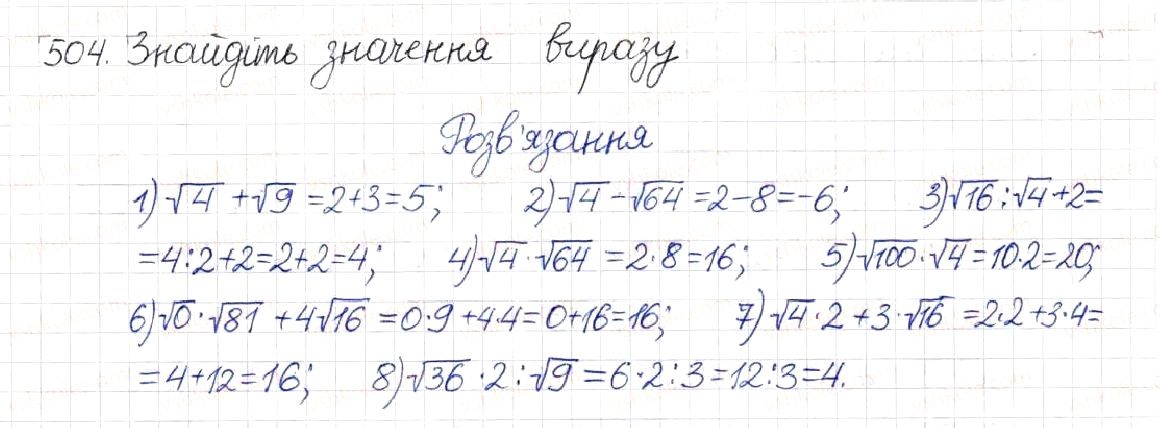 504. Знайдіть значення виразу
Розв'язання
1) √4 + √9 = 2+3=5; 2) √4 - √64 = 2-8=-6; 3) √16 : √4 + 2 =
= 4:2+2=2+2=4; 4) √4 · √64 = 2·8=16; 5) √100 · √4 = 10·2=20;
6) √0 · √81 + 4√16 = 0·9+4·4=0+16=16; 7) √4 · 2 + 3 · √16 = 2·2+3·4=
= 4+12=16; 8) √36 · 2 : √9 = 6·2:3=12:3=4.